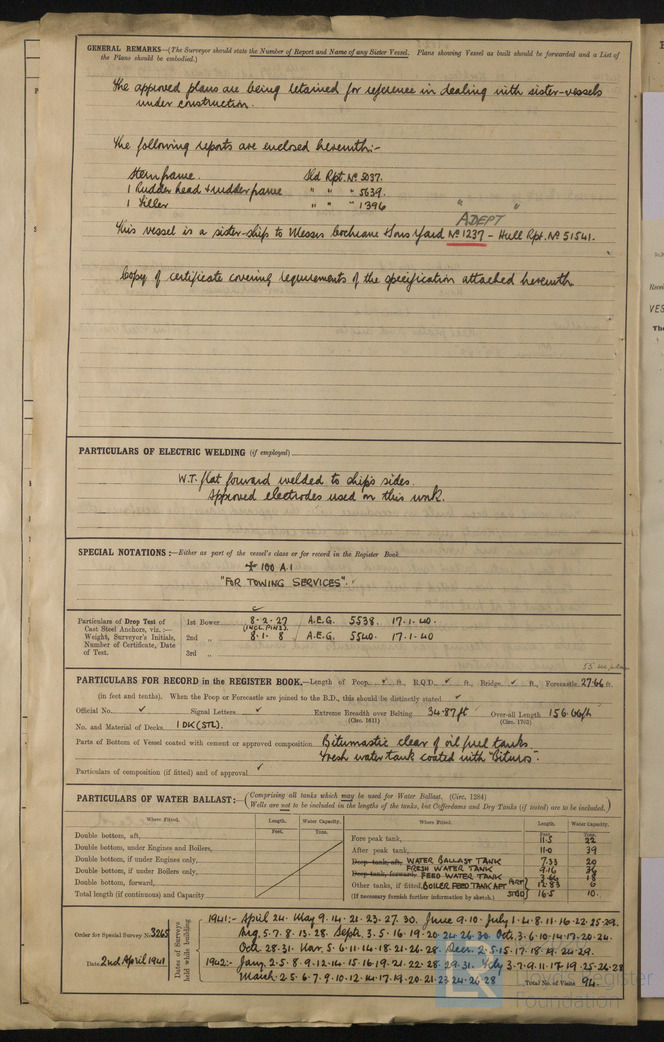 GENERAL REMARKS—(The Surveyor should state the Number of Report and Name of any Sister Vessel. Plans showing Vessel as built should be forwarded and a List of
the Plans should be embodied.)
The approved plans are being retained for reference in dealing with sister-vessels
under construction.
The following reports are enclosed herewith:-
Sternframe. Sld Rpt. No 5037.
1 Rudder head & rudder frame " " " 5639.
1 Tiller " " " 1396
" ADEPT "
This vessel is a sister-ship to Messrs Cochrane & Sons Yard No 1237 - Hull Rpt. No 51541.
Copy of certificate covering requirements of the specification attached herewith
PARTICULARS OF ELECTRIC WELDING (if employed)
W.T. flat forward welded to ship's sides.
Approved electrodes used on this work.
SPECIAL NOTATIONS:—Either as part of the vessel's class or for record in the Register Book
✠ 100 A.1
"FOR TOWING SERVICES".
Particulars of Drop Test of
Cast Steel Anchors, viz.:—
Weight, Surveyor's Initials,
Number of Certificate, Date
of Test.
1st Bower 8-2-27 A.E.G. 5538. 17-1-40.
(INCL. PINS).
2nd „ 8-1-8 A.E.G. 5540. 17-1-40
3rd „
PARTICULARS FOR RECORD in the REGISTER BOOK.—Length of Poop ft., R.Q.D. ft., Bridge ft., Forecastle 27.66 ft.
(in feet and tenths). When the Poop or Forecastle are joined to the B.D., this should be distinctly stated
Official No. Signal Letters Extreme Breadth over Belting 34.87ft Over-all Length 156.66ft
(Circ. 1611) (Circ. 1703)
No. and Material of Decks 1 DK (STL).
Parts of Bottom of Vessel coated with cement or approved composition Bitumastic clear of oil fuel tanks.
Fresh water tank coated with "Bituros".
Particulars of composition (if fitted) and of approval
PARTICULARS OF WATER BALLAST:—(Comprising all tanks which may be used for Water Ballast. (Circ. 1284)
Wells are not to be included in the lengths of the tanks, but Cofferdams and Dry Tanks (if tested) are to be included.)
Where Fitted. Length. Water Capacity. Where Fitted. Length. Water Capacity.
Feet. Tons.
Double bottom, aft,
Double bottom, under Engines and Boilers,
Double bottom, if under Engines only,
Double bottom, if under Boilers only,
Double bottom, forward,
Total length (if continuous) and Capacity
Fore peak tank, 11.5 22
After peak tank, 11.0 39
Deep tank, aft, WATER BALLAST TANK 7.33 20
FRESH WATER TANK 9.16 36
Deep tank, forward, FEED WATER TANK 3.66 18
Other tanks, if fitted, BOILER FEED TANK AFT PORT 12.83 6
(If necessary furnish further information by sketch.) STBD 16.5 10.
Order for Special Survey No. 3265
Date 2nd April 1941
Dates of Surveys held while building
1941:- April 24. May 9. 14. 21. 23. 27. 30. June 9. 10. July 1. 4. 8. 11. 16. 22. 25. 29.
Aug. 5. 7. 8. 13. 28. Sept. 3. 5. 16. 19. 20. 24. 26. 30. Oct. 3. 6. 10. 14. 17. 20. 24.
Oct. 28. 31. Nov. 5. 6. 11. 14. 18. 21. 26. 28. Dec. 2. 5. 15. 17. 18. 19. 24. 29.
1942:- Jany. 2. 5. 8. 9. 12. 14. 15. 16. 19. 21. 22. 28. 29. 31. Feby 3. 7. 9. 11. 17. 19. 25. 26. 28
March 2. 5. 6. 7. 9. 10. 12. 14. 17. 19. 20. 21. 23. 24. 26. 28
Total No. of Visits 94.
Lloyd's Register
Foundation